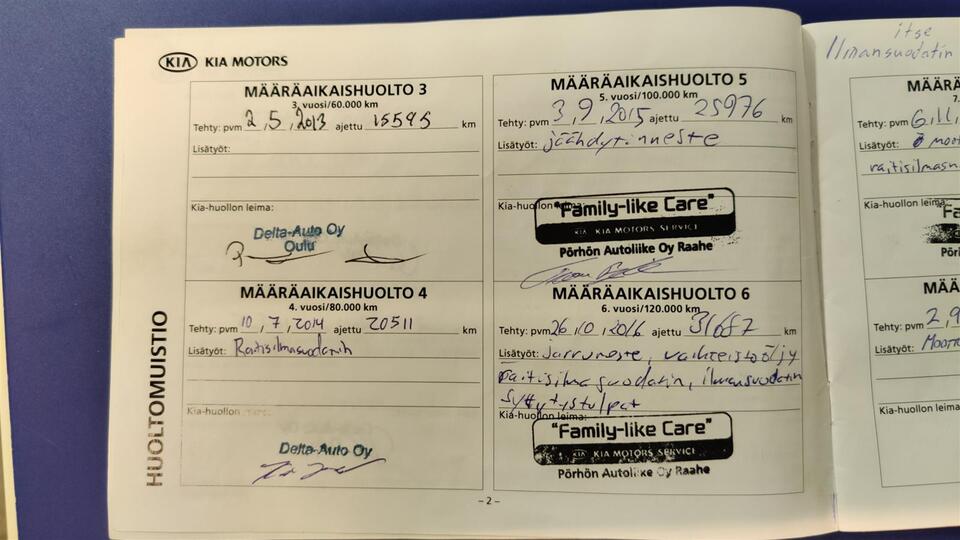 KIA KIA MOTORS
MÄÄRÄAIKAISHUOLTO 3
3. vuosi/60.000 km
Tehty: pvm 2,5,2013 ajettu 15595 km
Lisätyöt:
Kia-huollon leima:
Delta-Auto Oy
Oulu
MÄÄRÄAIKAISHUOLTO 4
4. vuosi/80.000 km
Tehty: pvm 10,7,2014 ajettu 20511 km
Lisätyöt: Raitisilmasuodatin
Kia-huollon leima:
Delta-Auto Oy
MÄÄRÄAIKAISHUOLTO 5
5. vuosi/100.000 km
Tehty: pvm 3,9,2015 ajettu 25976 km
Lisätyöt: jäähdytinneste
Kia-huollon leima:
"Family-like Care"
KIA KIA MOTORS SERVICE
Pörhön Autoliike Oy Raahe
MÄÄRÄAIKAISHUOLTO 6
6. vuosi/120.000 km
Tehty: pvm 26,10,2016 ajettu 31687 km
Lisätyöt: jarruneste, vaihteistoöljy
raitisilmasuodatin, ilmansuodatin
sytytystulpat
Kia-huollon leima:
"Family-like Care"
KIA KIA MOTORS SERVICE
Pörhön Autoliike Oy Raahe
HUOLTOMUISTIO
– 2 –
itse
Ilmansuodatin
MÄÄ
7.
Tehty: pvm 6,11,
Lisätyöt: moot
raitisilmasu
Kia-huollon leima:
"Fa
Pöri
MÄÄ
8.
Tehty: pvm 2,9
Lisätyöt: Moott
Kia-huollon leima: